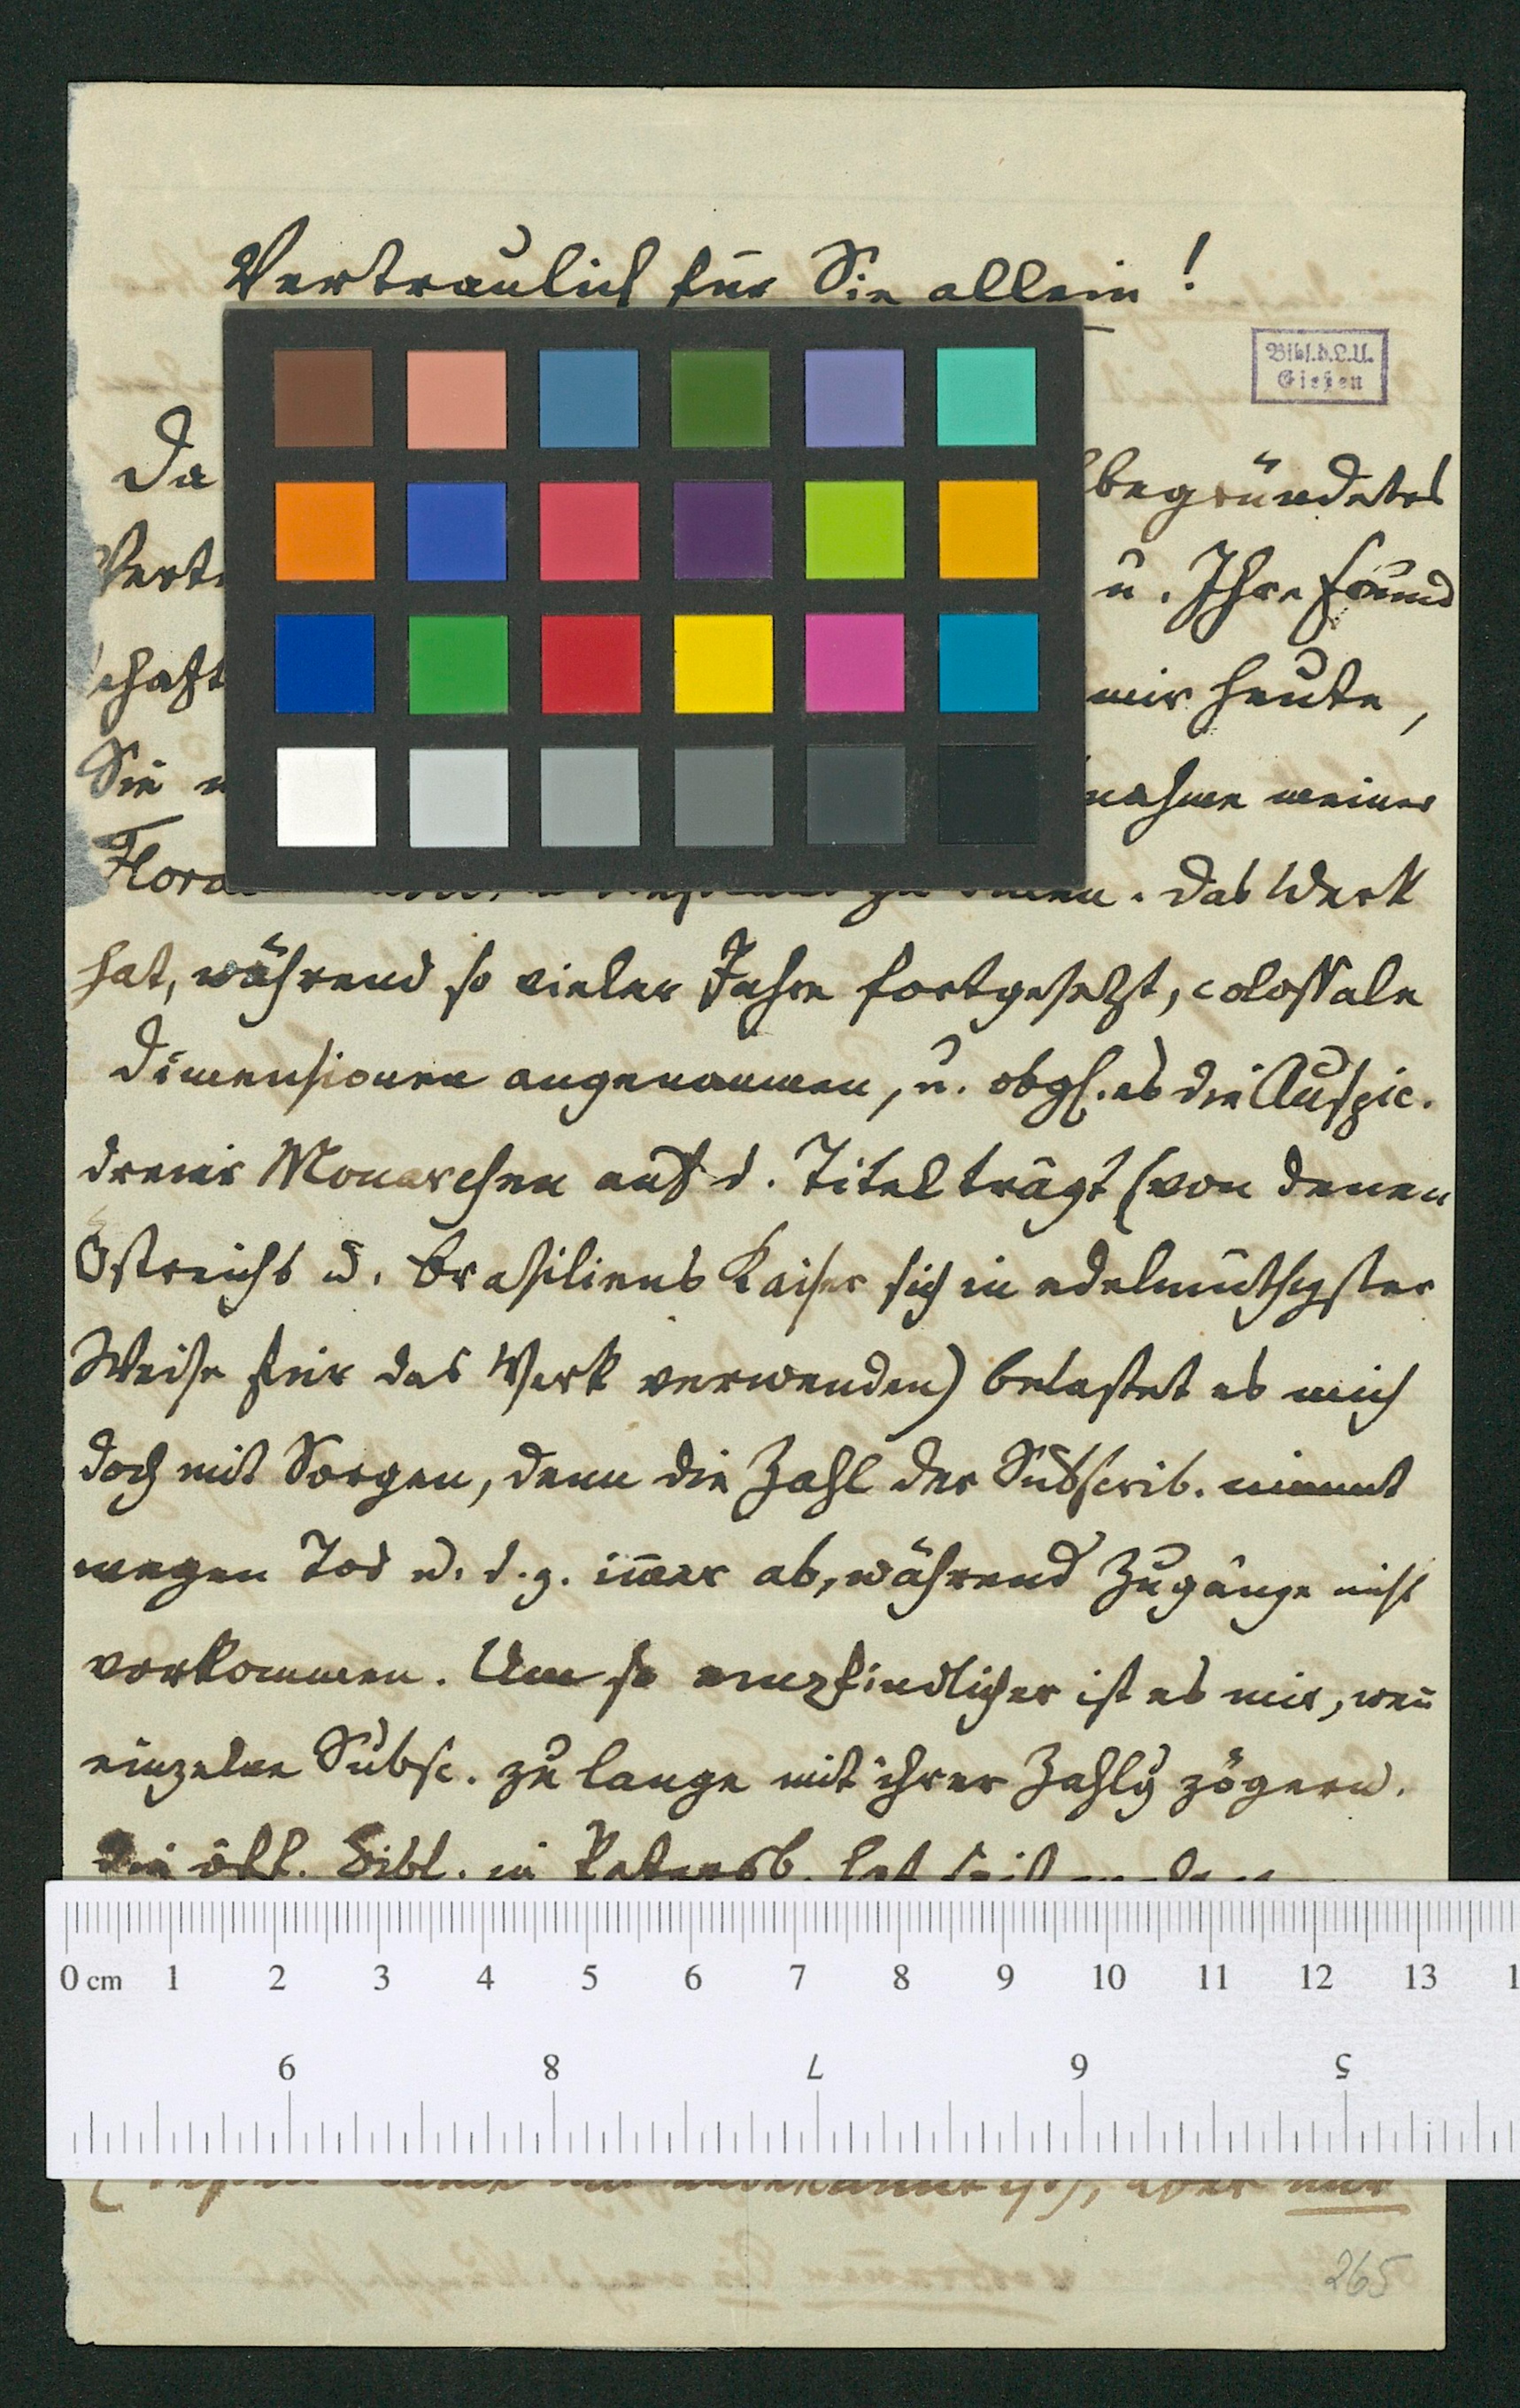 Vertraulich für Sie allein!
Bibl. d. L. U.
Gießen
Da begründetes
u. Ihre Freund
schaft mir heute,
Sie meiner
Das Werk
hat, während so vieler Jahre fortgesetzt, colossale
Dimensionen angenommen, u. obgl. es die Auspic.
dreier Monarchen auf d. Titel trägt (von denen
Östreichs u. Brasiliens Kaiser sich in edelmüthigster
Weise für das Werk verwenden) belastet es mich
doch mit Sorgen, denn die Zahl der Subscrib. nimmt
wegen Tod u. d. g. im̄er ab, während Zugänge nicht
vorkommen. Um so empfindlicher ist es mir, wen̄
einzelne Subsc. zu lange mit ihrer Zahlg zögern.
Die öff. Bibl. in Petersb. hat seit
0 cm 1 2 3 4 5 6 7 8 9 10 11 12 13 1
9 8 7 6 5
aber nur
265